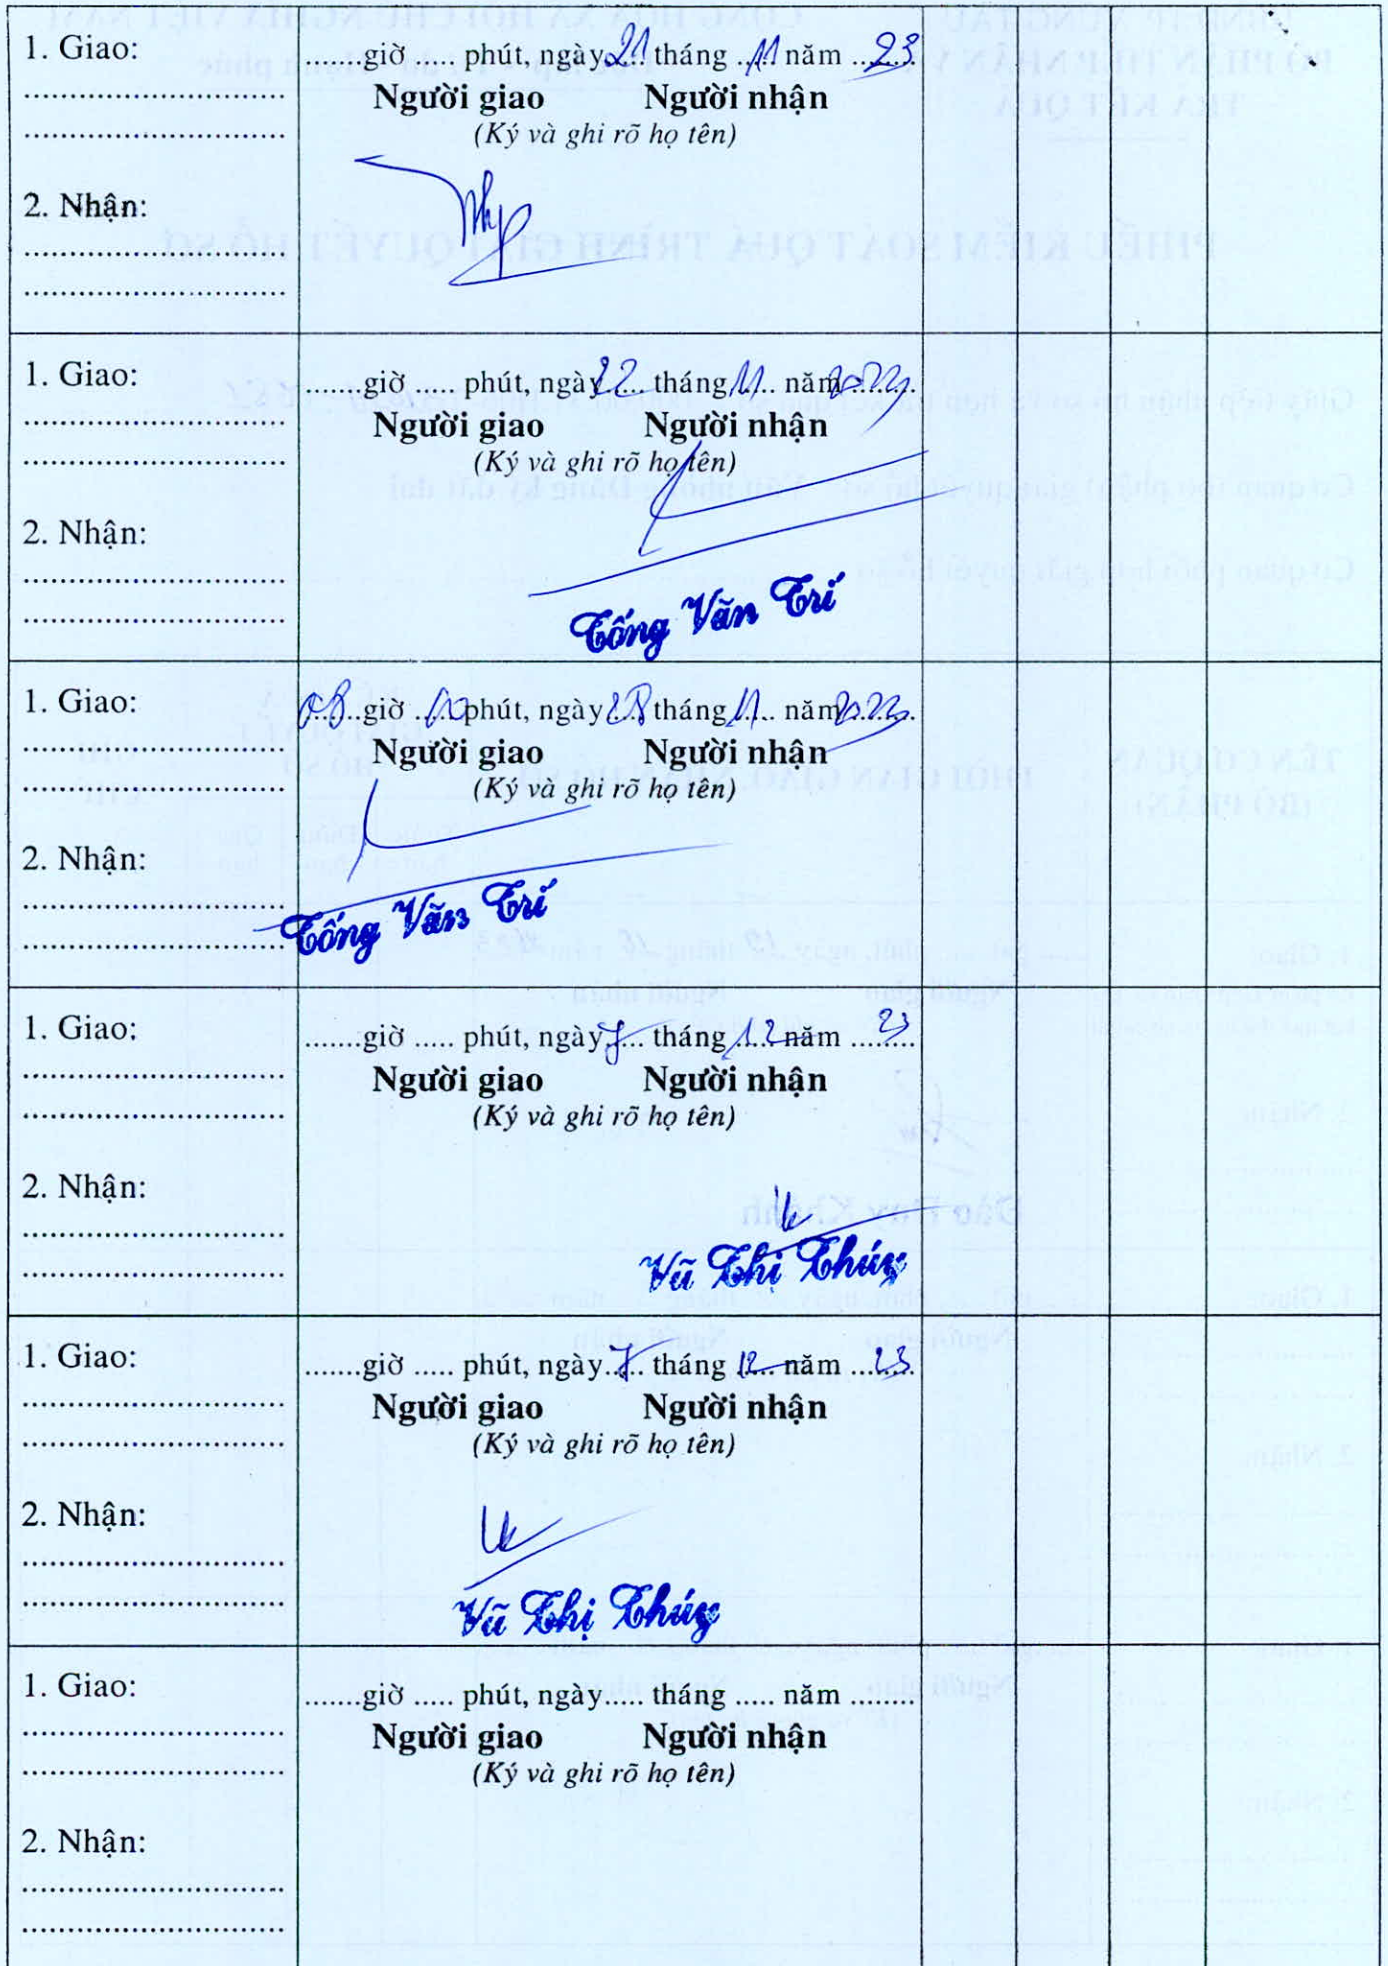 1. Giao:
.......giờ ..... phút, ngày 21 tháng 11 năm 23
Người giao Người nhận
(Ký và ghi rõ họ tên)
2. Nhận:
1. Giao:
.......giờ ..... phút, ngày 22 tháng 11 năm 2023
Người giao Người nhận
(Ký và ghi rõ họ tên)
2. Nhận:
Tống Văn Trí
1. Giao:
08 giờ 00 phút, ngày 28 tháng 11 năm 2023
Người giao Người nhận
(Ký và ghi rõ họ tên)
2. Nhận:
Tống Văn Trí
1. Giao:
.......giờ ..... phút, ngày 7 tháng 12 năm 23
Người giao Người nhận
(Ký và ghi rõ họ tên)
2. Nhận:
Vũ Thị Thúy
1. Giao:
.......giờ ..... phút, ngày 7 tháng 12 năm 23
Người giao Người nhận
(Ký và ghi rõ họ tên)
2. Nhận:
Vũ Thị Thúy
1. Giao:
.......giờ ..... phút, ngày.... tháng ..... năm .......
Người giao Người nhận
(Ký và ghi rõ họ tên)
2. Nhận: